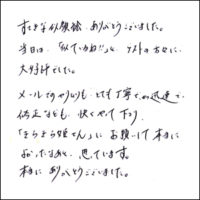 すてきな似顔絵、ありがとうございました。
当日は、「似ているね!!」と、ゲストの方々に、
大好評でした。
メールでのやりとりも、とても丁寧でかつ迅速で、
修正なども、快くやって下さり
「きらきら姫さん」にお願いして本当に
よかったなあと、思っています。
本当にありがとうございました。